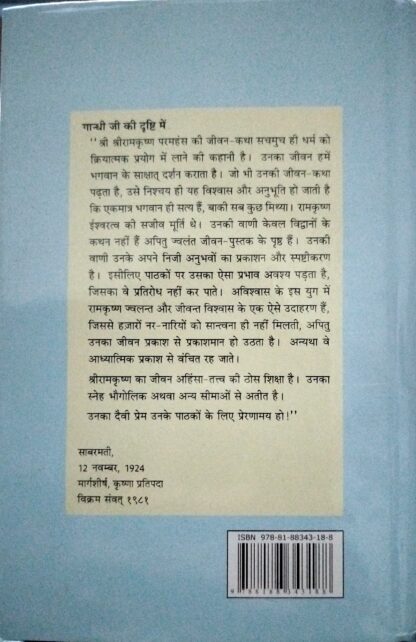 गान्धी जी की दृष्टि में
''श्री श्रीरामकृष्ण परमहंस की जीवन-कथा सचमुच ही धर्म को
क्रियात्मक प्रयोग में लाने की कहानी है। उनका जीवन हमें
भगवान के साक्षात् दर्शन कराता है। जो भी उनकी जीवन-कथा
पढ़ता है, उसे निश्चय ही यह विश्वास और अनुभूति हो जाती है
कि एकमात्र भगवान ही सत्य हैं, बाकी सब कुछ मिथ्या। रामकृष्ण
ईश्वरत्व की सजीव मूर्ति थे। उनकी वाणी केवल विद्वानों के
कथन नहीं हैं अपितु ज्वलंत जीवन-पुस्तक के पृष्ठ हैं। उनकी
वाणी उनके अपने निजी अनुभवों का प्रकाशन और स्पष्टीकरण
है। इसीलिए पाठकों पर उसका ऐसा प्रभाव अवश्य पड़ता है,
जिसका वे प्रतिरोध नहीं कर पाते। अविश्वास के इस युग में
रामकृष्ण ज्वलन्त और जीवन्त विश्वास के एक ऐसे उदाहरण हैं,
जिससे हज़ारों नर-नारियों को सान्त्वना ही नहीं मिलती, अपितु
उनका जीवन प्रकाश से प्रकाशमान हो उठता है। अन्यथा वे
आध्यात्मिक प्रकाश से वंचित रह जाते।
श्रीरामकृष्ण का जीवन अहिंसा-तत्त्व की ठोस शिक्षा है। उनका
स्नेह भौगोलिक अथवा अन्य सीमाओं से अतीत है।
उनका दैवी प्रेम उनके पाठकों के लिए प्रेरणामय हो!''
साबरमती,
12 नवम्बर, 1924
मार्गशीर्ष, कृष्णा प्रतिपदा
विक्रम संवत् १९८१
ISBN 978-81-88343-18-8
9 788188 343188